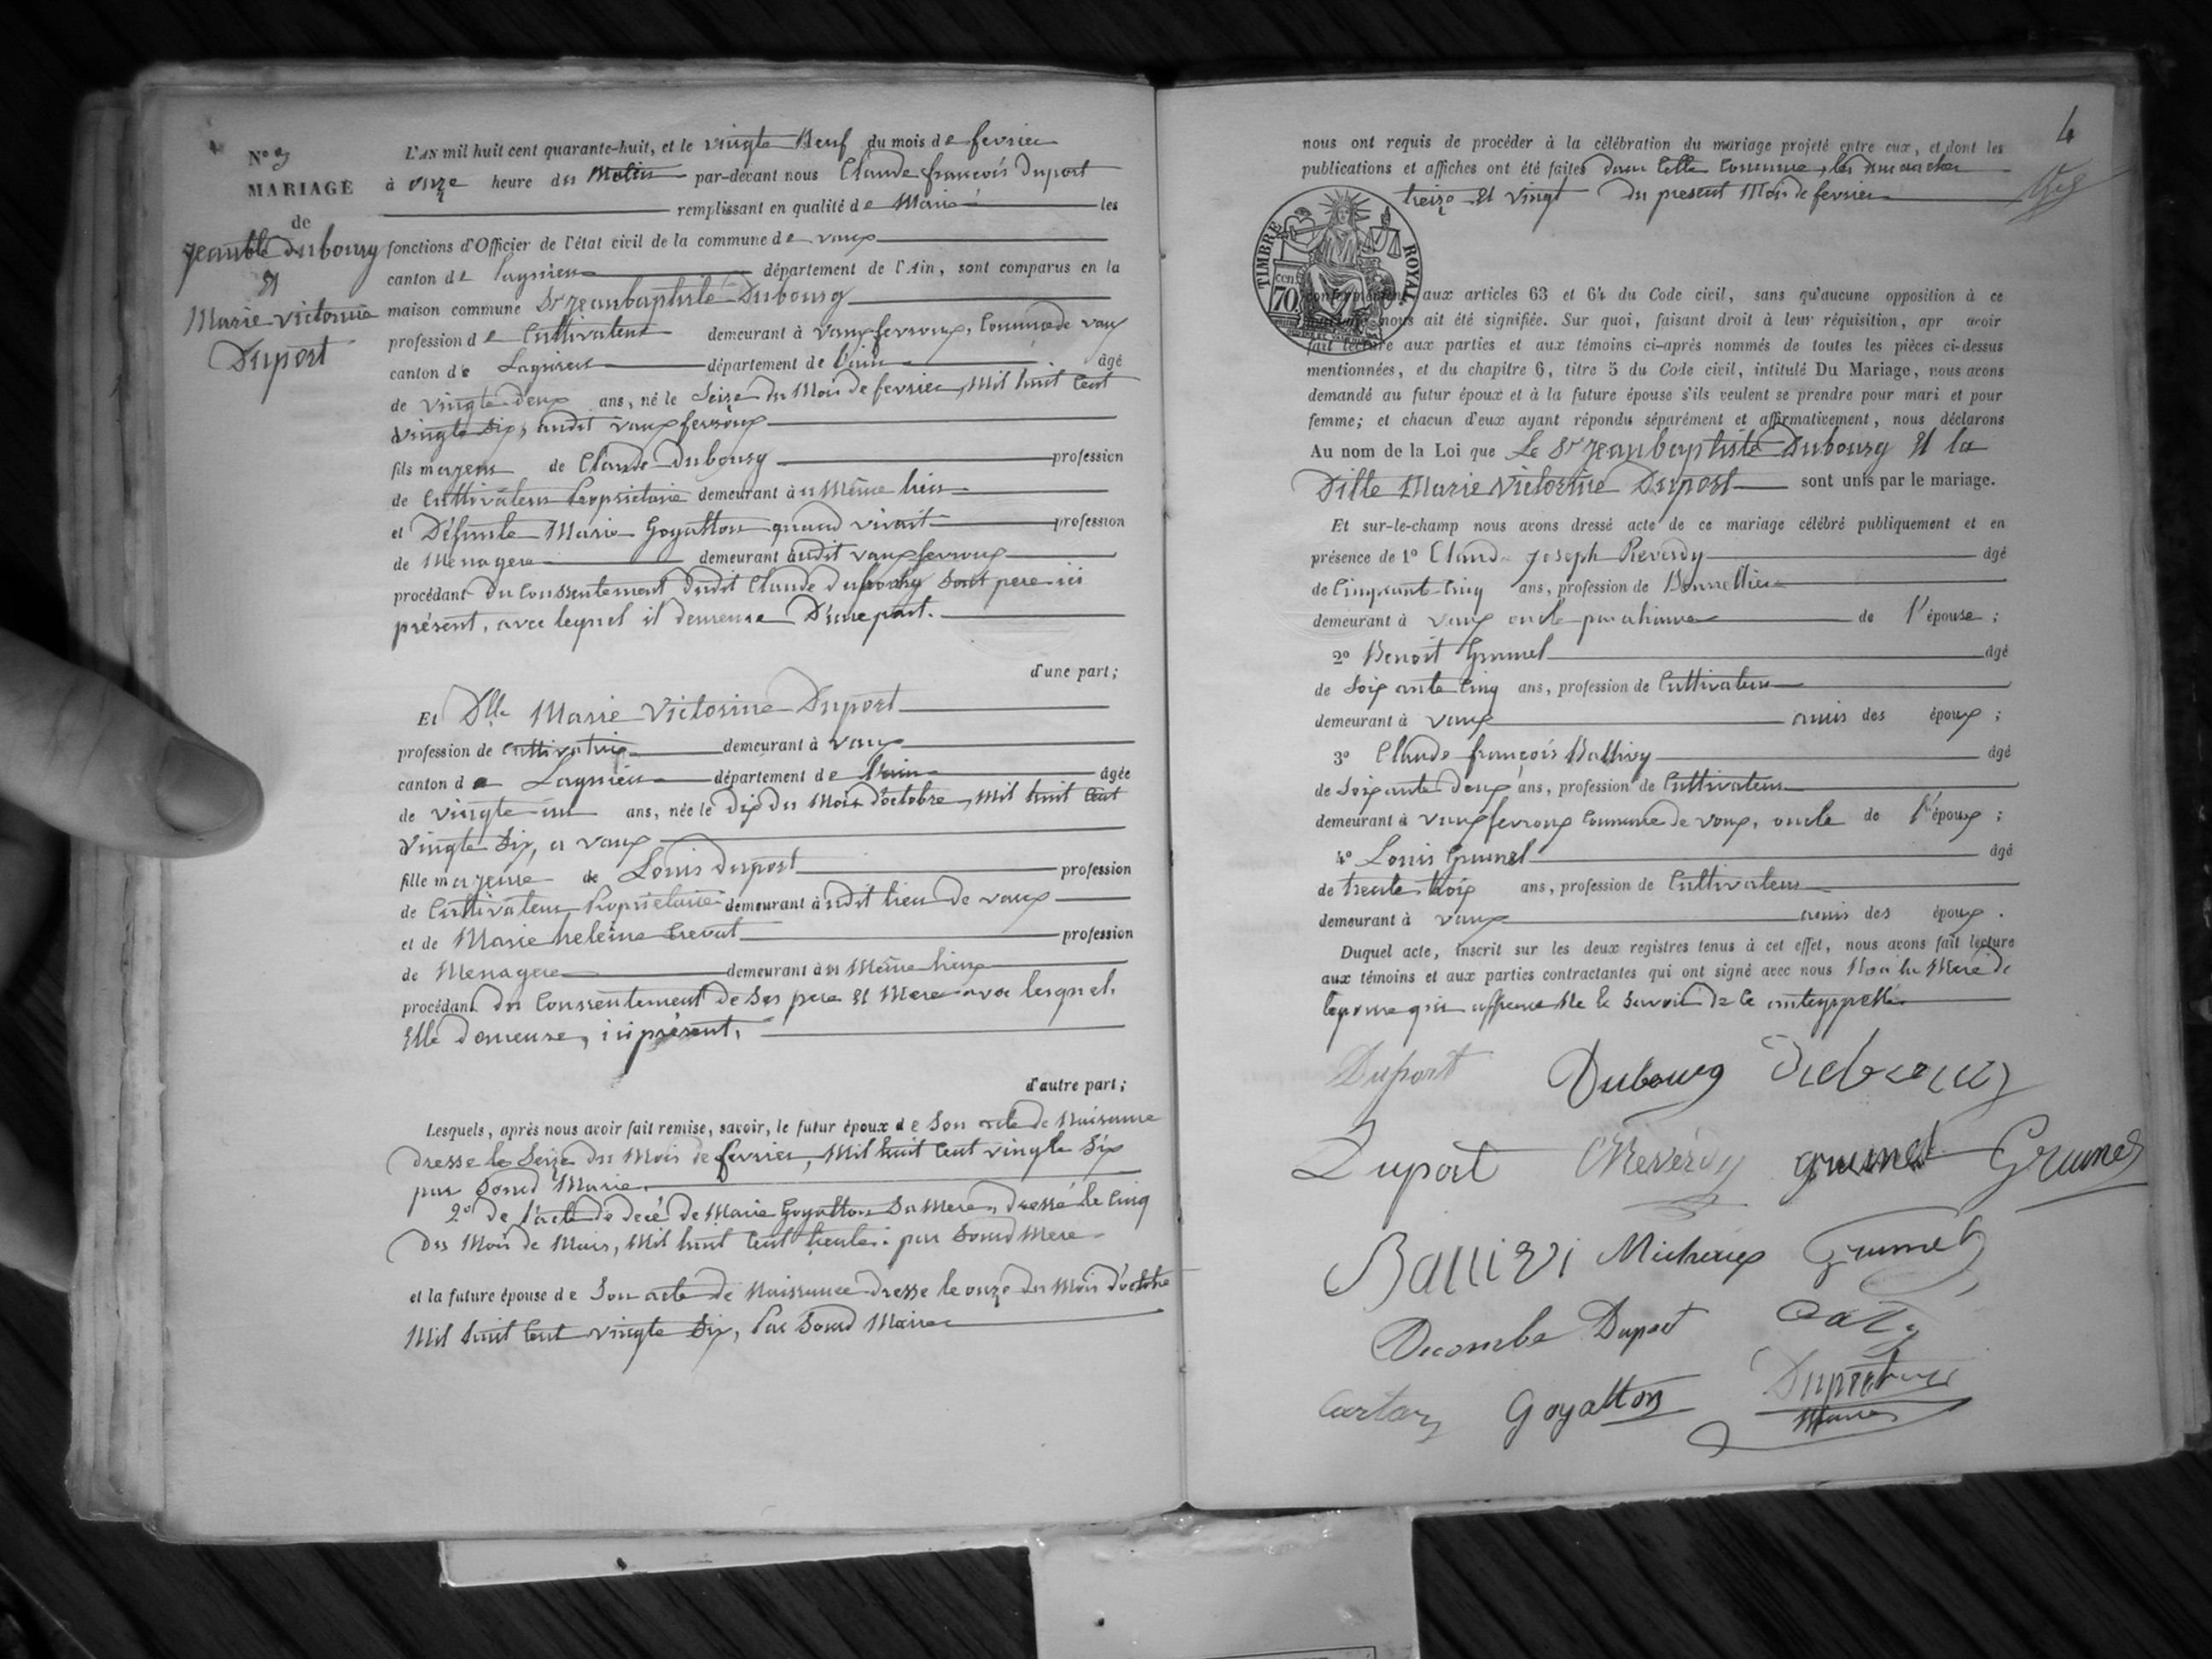 N° 3
MARIAGE
de
Jean Bte Dubourg
Et
Marie Victorine
Duport
L'AN mil huit cent quarante-huit, et le vingte Neuf du mois de fevrier
à onze heure du Matin par-devant nous Claude françois Duport
remplissant en qualité de Maire les
fonctions d'Officier de l'état civil de la commune de vaux
canton de Lagnieu département de l'Ain, sont comparus en la
maison commune Sr Jean baptiste Dubourg
profession de Cultivateur demeurant à vaux fevroux, Commune de vaux
canton de Lagnieu département de l'ain âgé
de vingte deux ans, né le Seize du Mois de fevrier, Mil huit Cent
vingte Six, audit vaux fevroux
fils majeur de Claude Dubourg profession
de Cultivateur Propriétaire demeurant au Même lieu
et Défunte Marie Goyatton quand vivait profession
de Menagere demeurant audit vaux fevroux
procédant du Consentement dudit Claude Dubourg Sont pere ici
présent, avec lequel il demeure D'une part.
d'une part;
Et Dlle Marie Victorine Duport
profession de Cultivatrice demeurant à vaux
canton de Lagnieu département de l'ain âgée
de vingte un ans, née le Dix du Mois d'octobre, Mil huit Cent
vingte Six, a vaux
fille majeure de Louis Duport profession
de Cultivateur Propriétaire demeurant audit lieu de vaux
et de Marie heleine profession
de Menagere demeurant au Même lieux
procédant du Consentement de Ses pere Et Mere avec lesquel,
Elle demeure, ici présent,
d'autre part;
Lesquels, après nous avoir fait remise, savoir, le futur époux de Son acte de Naissance
Dresse le Seize du Mois de fevrier, Mil huit Cent vingte Six
par Maire
2° de l'acte de décé de Marie Goyatton Sa Mere, dressé le Cinq
du Mois de Mars, Mil huit Cent trente. par
et la future épouse de Son acte de Naissance dresse le onze du Mois d'octobre
Mil huit Cent vingte Six, Par Maire
4
nous ont requis de procéder à la célébration du mariage projeté entre eux, et dont les
publications et affiches ont été faites dans Cette Commune, les
treize Et vingt du present Mois de fevrier
TIMBRE ROYAL
70 cen
conformément aux articles 63 et 64 du Code civil, sans qu'aucune opposition à ce
mariage nous ait été signifiée. Sur quoi, faisant droit à leur réquisition, apr avoir
fait lecture aux parties et aux témoins ci-après nommés de toutes les pièces ci-dessus
mentionnées, et du chapitre 6, titre 5 du Code civil, intitulé Du Mariage, nous avons
demandé au futur époux et à la future épouse s'ils veulent se prendre pour mari et pour
femme; et chacun d'eux ayant répondu séparément et affirmativement, nous déclarons
Au nom de la Loi que Le Sr Jean baptiste Dubourg Et la
Dille Marie Victorine Duport sont unis par le mariage.
Et sur-le-champ nous avons dressé acte de ce mariage célébré publiquement et en
présence de 1° Claude Joseph Reverdy âgé
de Cinquante Cinq ans, profession de Bourrellier
demeurant à vaux oncle par aliance de l'épouse;
2° Benoit Grumel âgé
de Soixante Cinq ans, profession de Cultivateur
demeurant à vaux amis des époux;
3° Claude françois Ballivy âgé
de Soixante Deux ans, profession de Cultivateur
demeurant à vaux fevroux Commune de vaux, oncle de l'époux;
4° Louis Grumel âgé
de trente trois ans, profession de Cultivateur
demeurant à vaux amis des époux.
Duquel acte, inscrit sur les deux registres tenus à cet effet, nous avons fait lecture
aux témoins et aux parties contractantes qui ont signé avec nous Non la Mere de
lepouse qui le Savoir de Ce
Duport Dubourg Dubourg
Duport Reverdy grumel Grumel
Ballivi Micheux Grumel
Decombe Duport
Goyatton Duport
Maire